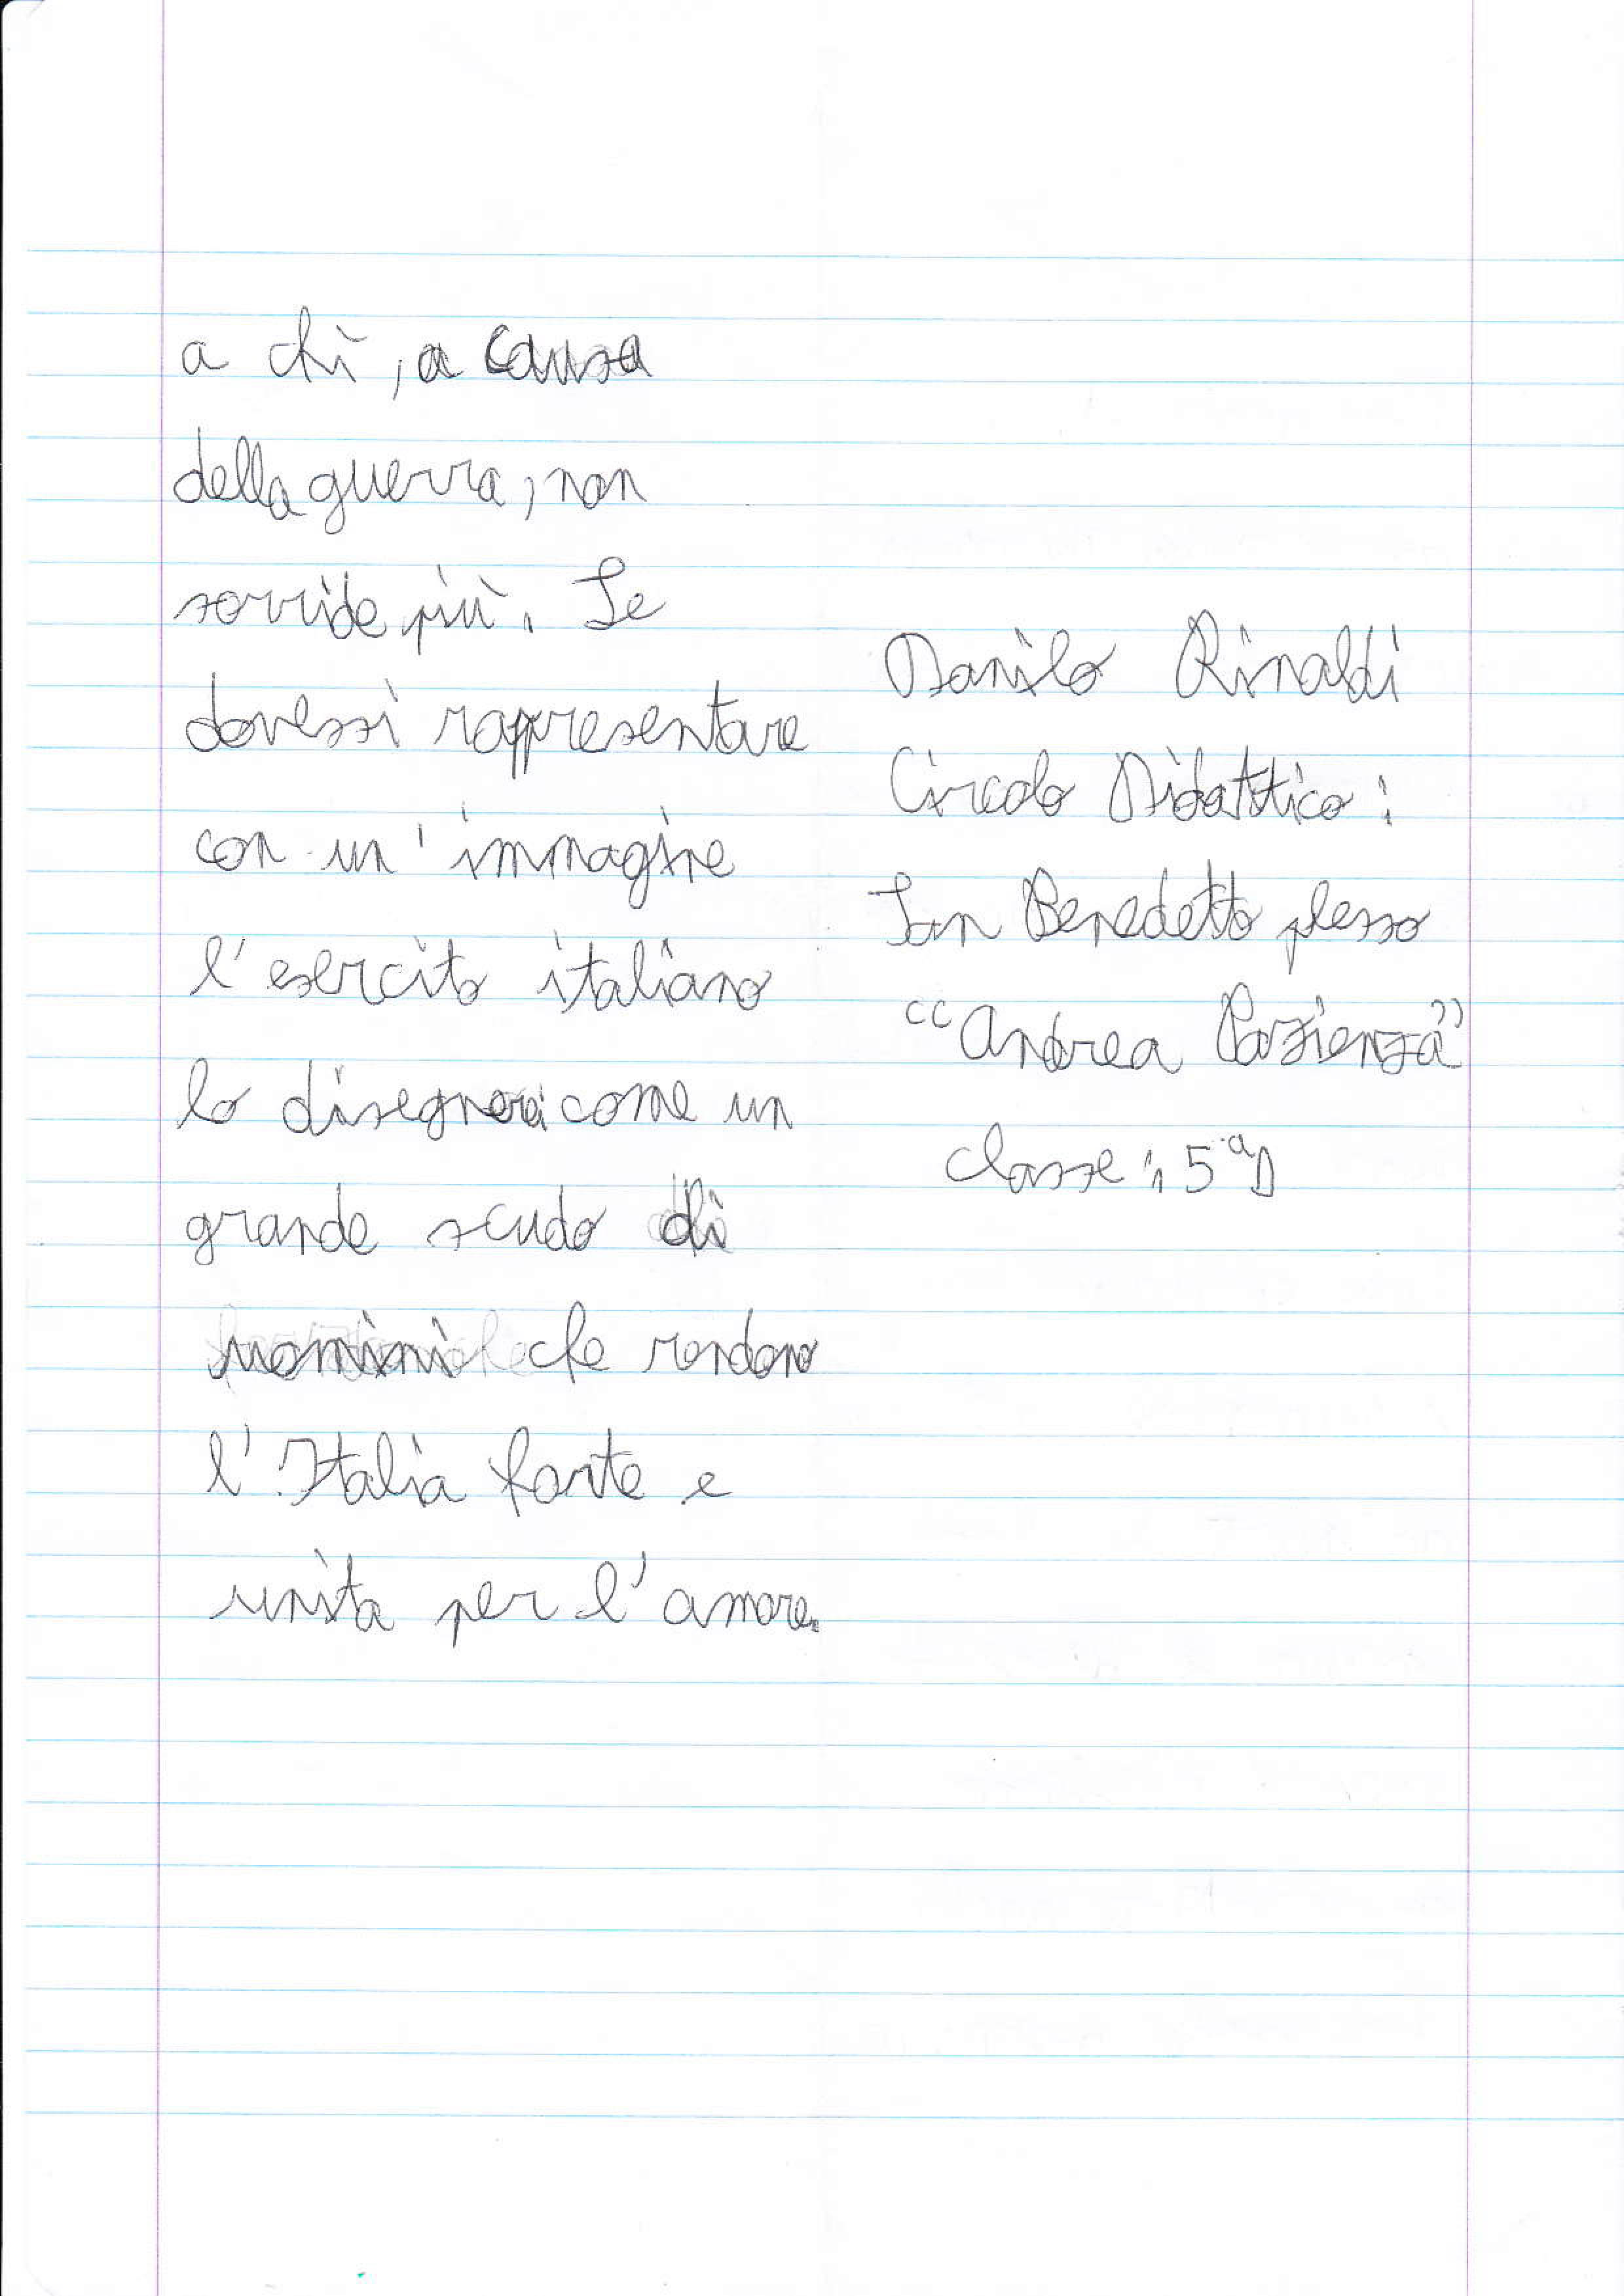 a chi, a causa
della guerra, non
sorride più. Se
dovessi rappresentare
con un'immagine
l'esercito italiano
lo disegnerei come un
grande scudo di
uomini che rendono
l'Italia forte e
unita per l'amore.
Danilo Rinaldi
Circolo Didattico:
San Benedetto plesso
“Andrea Pazienza”
classe: 5ªD